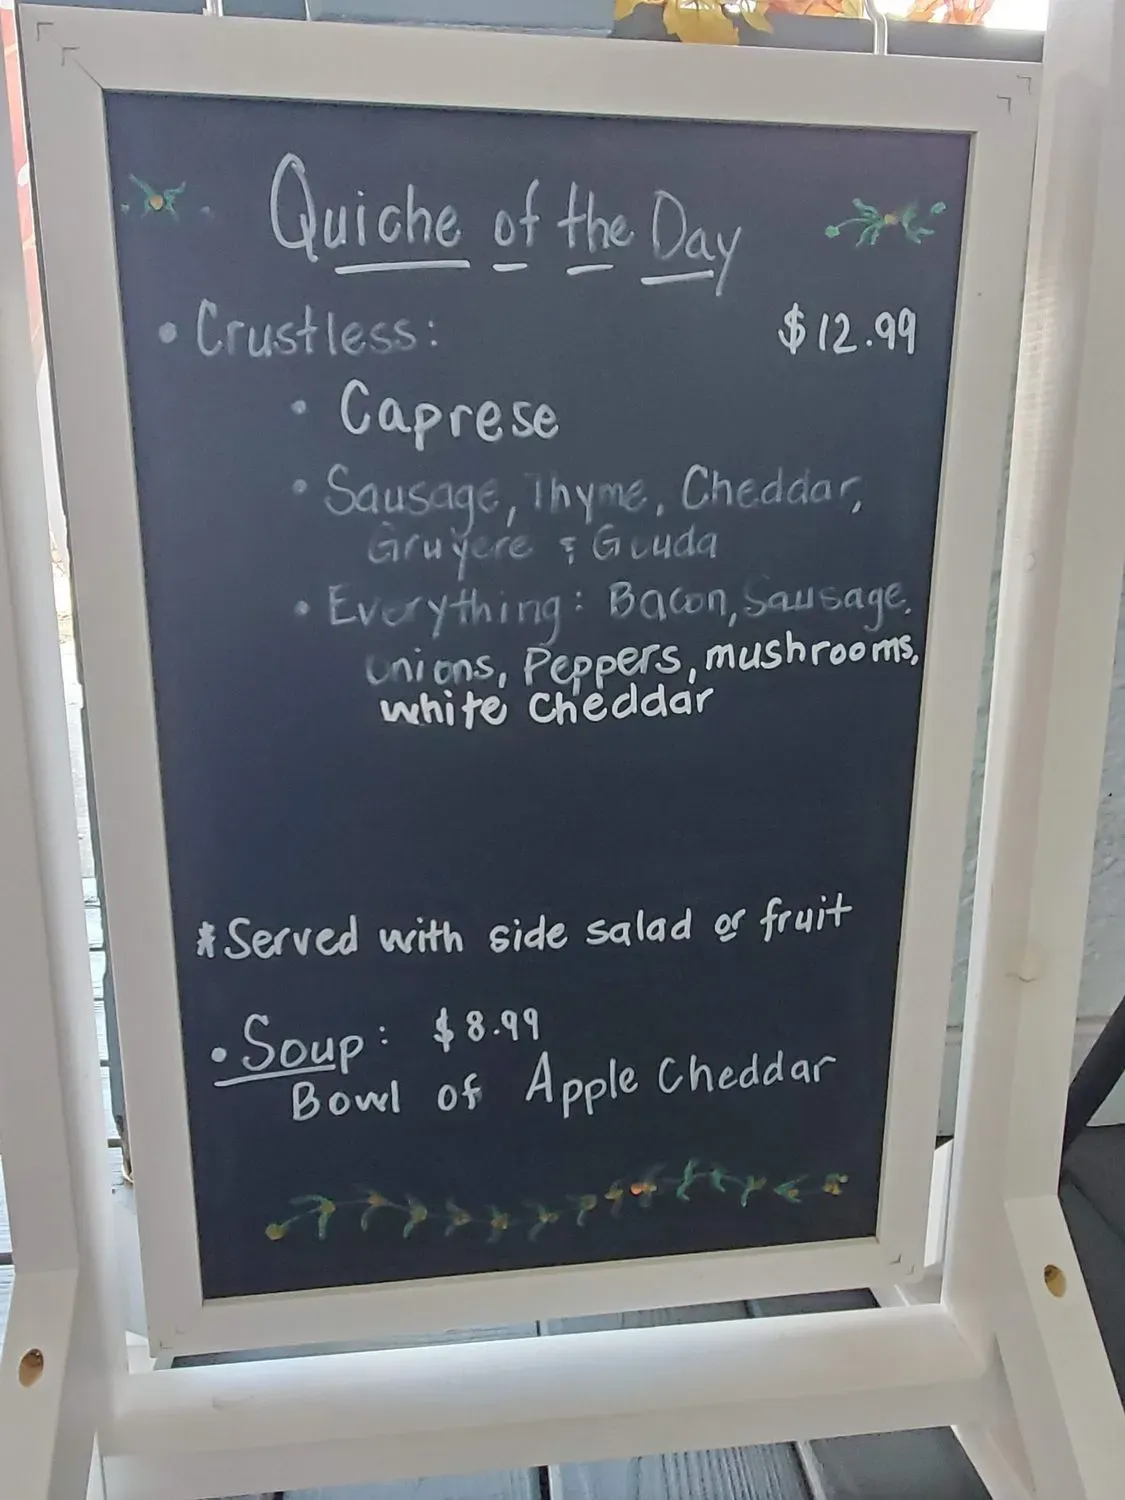 Quiche of the Day
• Crustless: $12.99
• Caprese
• Sausage, Thyme, Cheddar,
Gruyere & Gouda
• Everything: Bacon, Sausage,
onions, Peppers, mushrooms,
white Cheddar
*Served with side salad or fruit
• Soup: $8.99
Bowl of Apple Cheddar